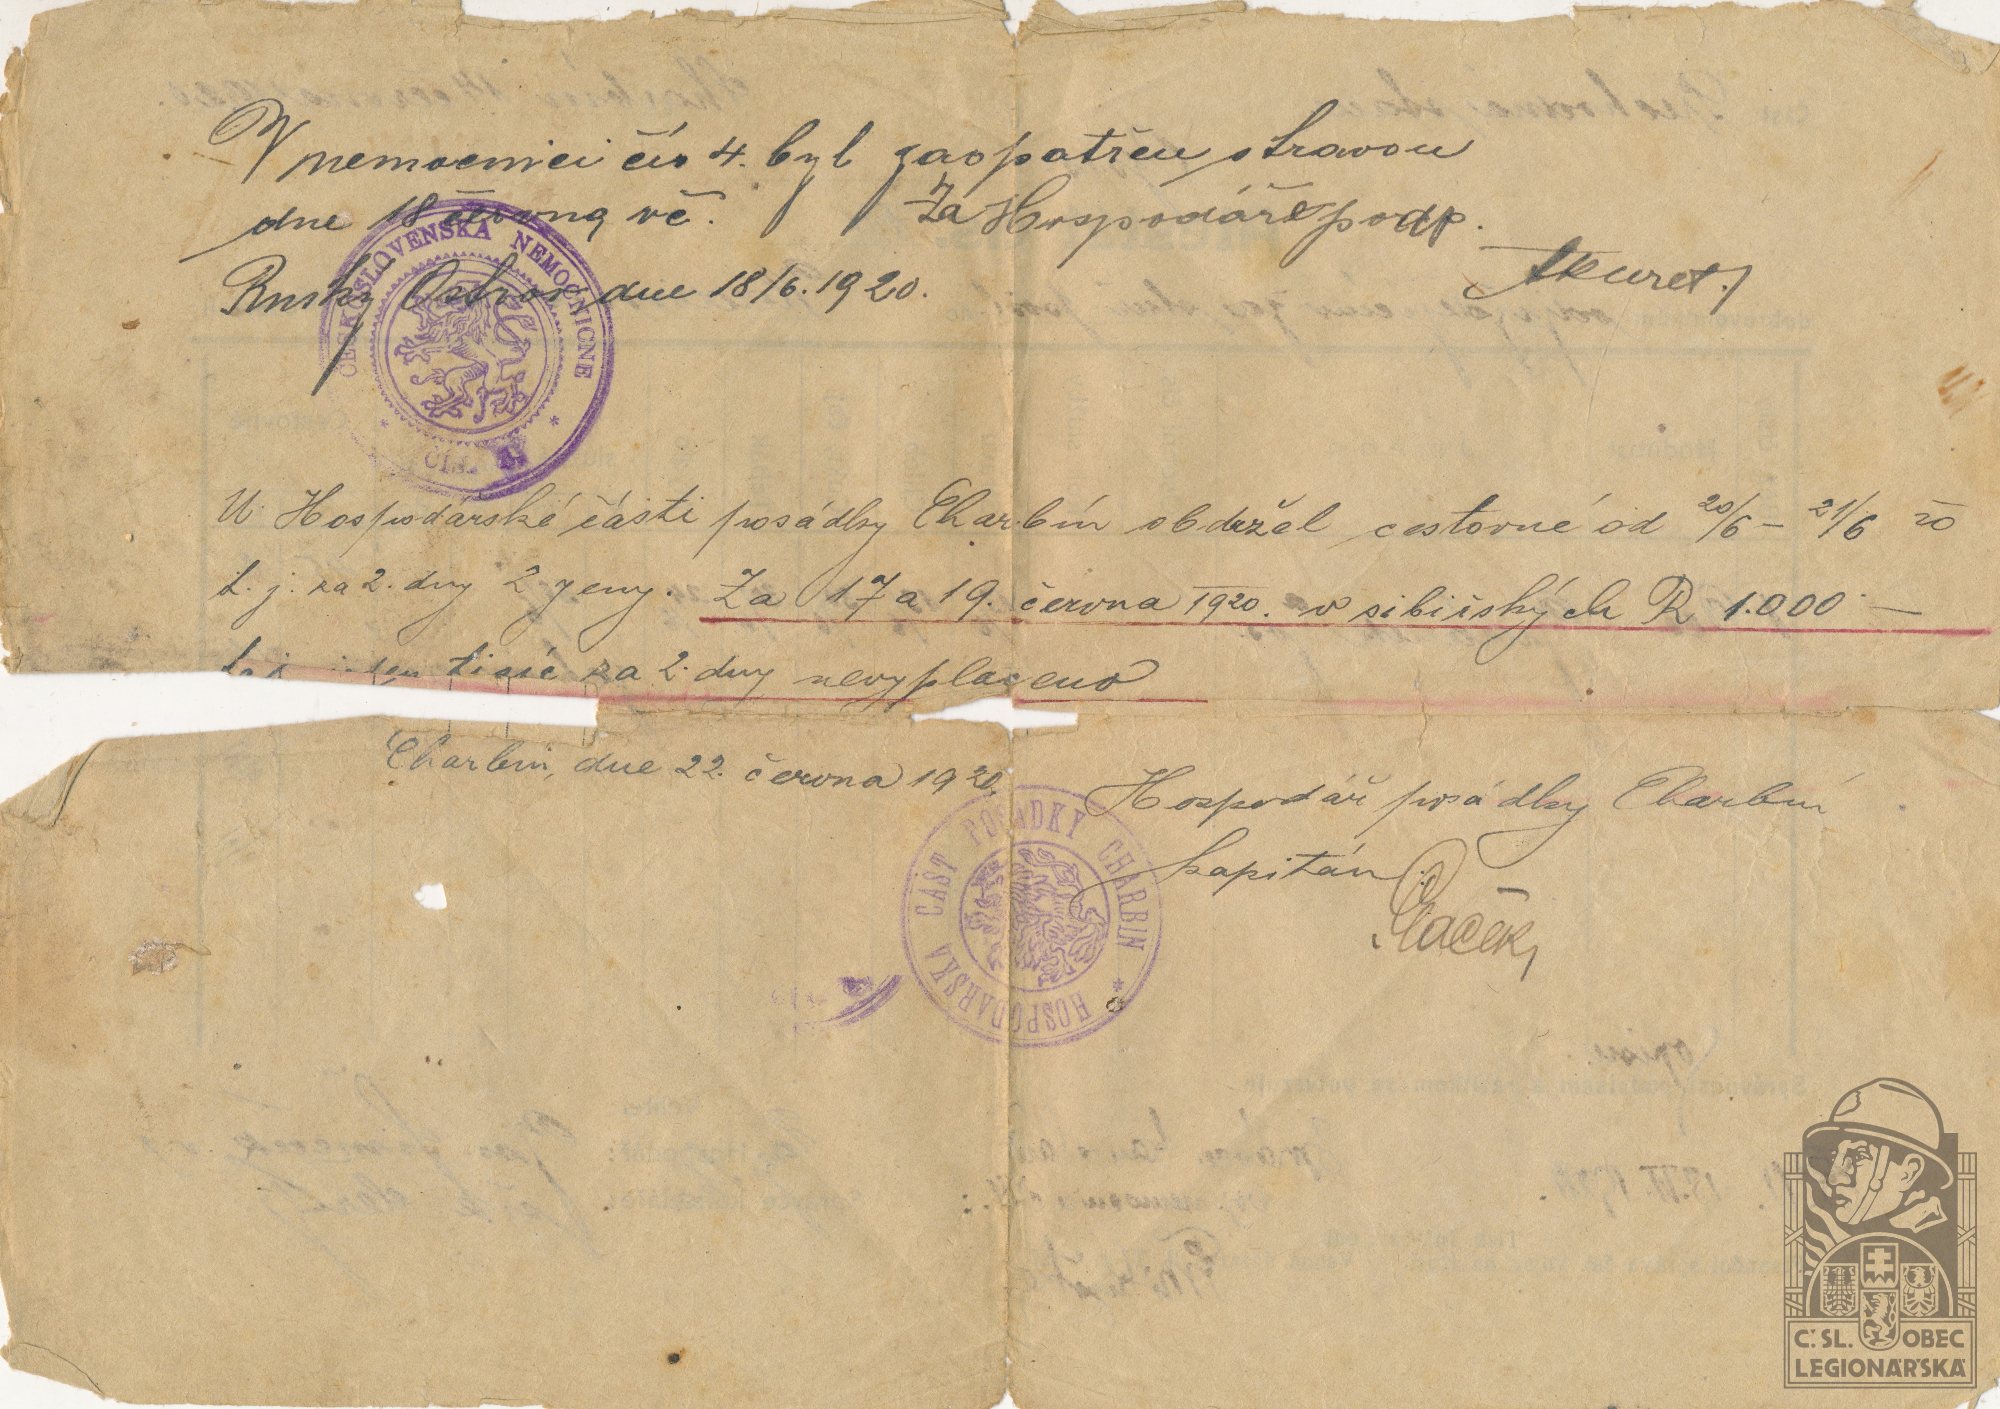 V nemocnici čís 4. byl zaopatřen stravou
dne 18 června vč. Za Hospodáře podp.
Ruský Ostrov dne 18/6. 1920.
ČESKOSLOVENSKÁ NEMOCNICE
ČÍS.
U Hospodářské části posádky Charbin obdržel cestovné od 20/6 – 21/6 20
t. j. za 2. dny 2 jeny. Za 17 a 19. června 1920. v sibiřských R 1.000 –
t. j. jeden tisíc za 2. dny nevyplaceno
Charbin, dne 22. června 1920.
Hospodář posádky Charbin
kapitán
HOSPODÁŘSKÁ ČÁST POSÁDKY CHARBIN *
Č.SL. OBEC
LEGIONÁŘSKÁ